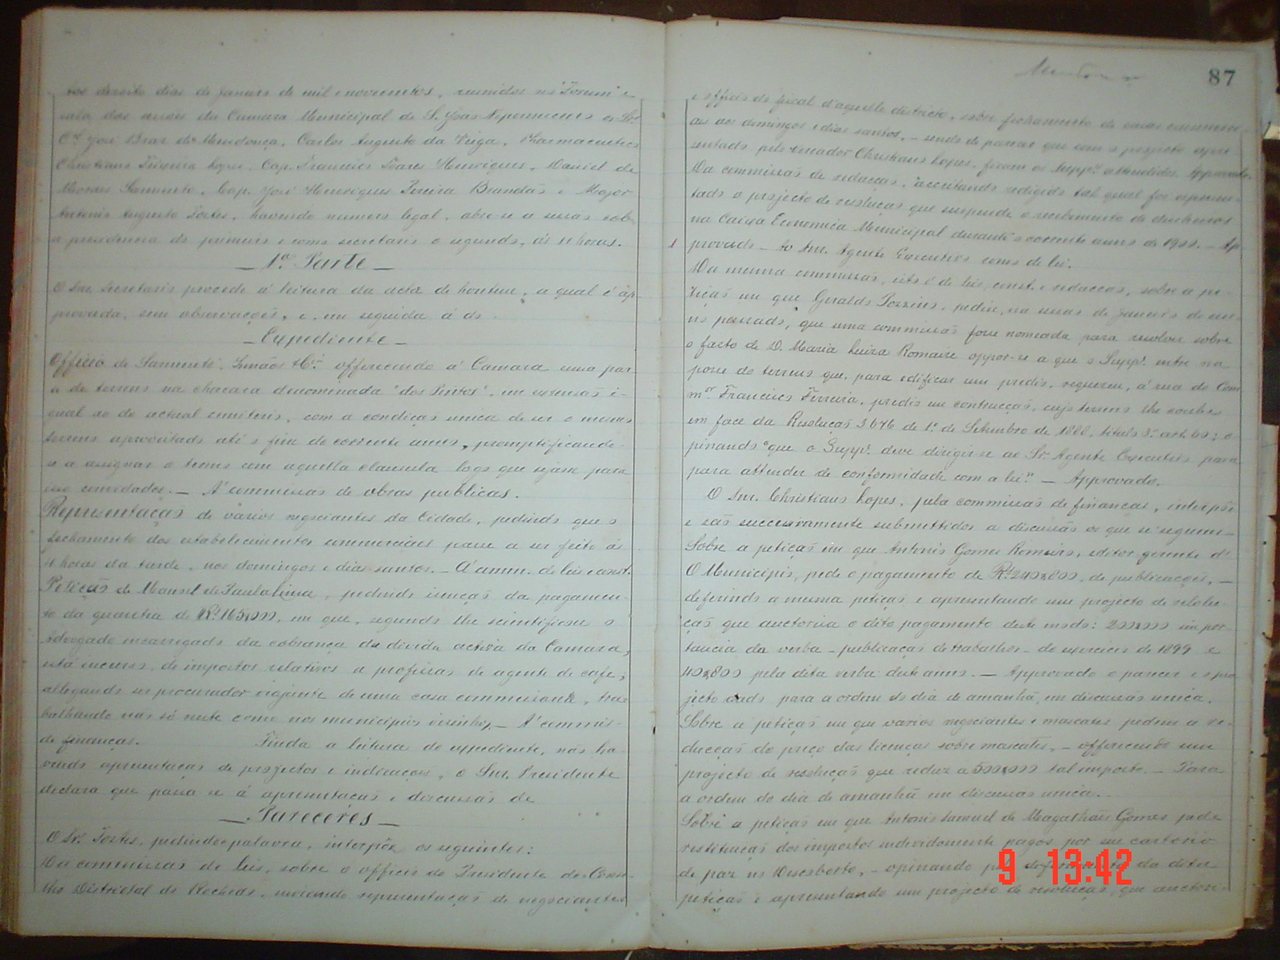 Aos dezoito dias de Janeiro de mil e novecentos, reunidos no Forum e
sala das sessões da Camara Municipal de S. João Nepomuceno os Srs.
Cel. José Braz de Mendonça, Carlos Augusto da Veiga, Pharmaceutico
Christiano Teixeira Lopes, Cap. Francisco Soares Henriques, Manoel de
Moraes Sarmento, Cap. José Henriques Pereira Brandão e Major
Antonio Augusto Fortes, havendo numero legal, abre-se a sessão sob
a presidencia do primeiro e como secretario o segundo, ás 11 horas.
— 1a. Parte —
O Snr. Secretario procede á leitura da acta de hontem, a qual é ap-
provada, sem observações, e, em seguida á do
— Expediente —
Officio de Sarmento, Irmão & Ca. offerecendo á Camara uma par-
te de terreno na chacara denominada "dos Pintos", em extensão i-
gual ao do actual cemiterio, com a condição unica de ser o mesmo
terreno aproveitado até o fim do corrente anno, promptificando-
se a assignar o termo com aquella clausula logo que sejam para
isso convidados. — Á commissão de obras publicas.
Representação de varios negociantes da Cidade, pedindo que o
fechamento dos estabelecimentos commerciaes passe a ser feito ás
4 horas da tarde, nos domingos e dias santos. — Á comm. de leis e const.
Petição de Manoel de Paula Lima, pedindo isenção da pagamen-
to da quantia de Rs. 165$000, em que, segundo lhe scientificou o
advogado encarregado da cobrança da divida activa da Camara,
está incurso, de impostos relativos a profissão de agente de café,
allegando ser procurador viajente de uma casa commissaria, tra-
balhando não só neste como nos municipios visinhos. — Á commis.
de finanças. Finda a leitura do expediente, não ha-
vendo apresentação de projectos e indicações, o Snr. Presidente
declara que passa-se á apresentação e discussão de
— Pareceres —
O Sr. Fortes, pedindo a palavra, interpõe os seguintes:
Da commissão de leis, sobre o officio do Presidente do Conse-
lho Districtal de Rochedo, enviando representação de negociantes
87
e officio do fiscal d'aquelle districto, sobre fechamento de casas commer-
ciaes aos domingos e dias santos, — sendo de parecer que com o projecto apre-
sentado pelo vereador Christiano Lopes, ficam os Suppes. attendidos. Approvado.
Da commissão de redacção, acceitando redigido tal qual foi apresen-
tado o projecto de resolução que suspende o recebimento de dinheiros
na Caixa Economica Municipal durante o corrente anno de 1900. — Ap-
provado — Ao Snr. Agente Executivo como de lei.
Da mesma commissão, isto é de leis, const. e redacção, sobre a pe-
tição em que Geraldo pedira, na sessão de Janeiro do an-
no passado, que uma commissão fosse nomeada para resolver sobre
o facto de D. Maria Luiza Romaire oppor-se a que o Suppe. entre na
posse do terreno que, para edificar um predio, requereu, á rua do Com-
mor. Francisco Ferreira, predio em contrucção, cujo terreno lhe coube
em face da Resolução 3676 de 1o. de Setembro de 1888, titulo 3o. art. 40; o-
pinando "que o Suppe. deve dirigir-se ao Sr. Agente Executivo para
para attender de conformidade com a lei." — Approvado.
O Snr. Christiano Lopes, pela commissão de finanças, interpõe
e são successivamente submettidos a discussão os que se seguem: —
Sobre a petição em que Antonio Gomes Romeiro, editor-gerente d'
O Municipio, pede o pagamento de Rs. 240$800, de publicações, —
deferindo a mesma petição e apresentando um projecto de resolu-
ção que auctorisa o dito pagamento deste modo: 200$000 impor-
tancia da verba — publicação de trabalhos — do exercicio de 1899 e
40$800 pela dita verba deste anno. — Approvado o parecer e o pro-
jecto dado para a ordem do dia de amanhã, em discussão unica.
Sobre a petição em que varios negociantes e mascates pedem a re-
ducção do preço das licenças sobre mascates, — offerecendo um
projecto de resolução que reduz a 500$000 tal imposto. — Para
a ordem do dia de amanhã em discussão unica. —
Sobre a petição em que Antonio Samuel de Magalhães Gomes pede
restituição dos impostos indevidamente pagos por seu cartorio
de paz no Descoberto, — opinando da dita
petição e apresentando um projecto de resolução, em auctori-
9 13:42